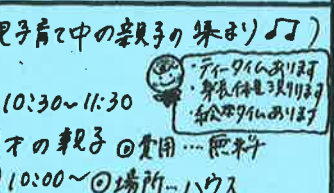 子育て中の親子の集まり♪♫)
・ティータイムあります
・身長体重測ります
10:30~11:30
才の親子 ◎費用…無料
10:00~ ◎場所…ハウス